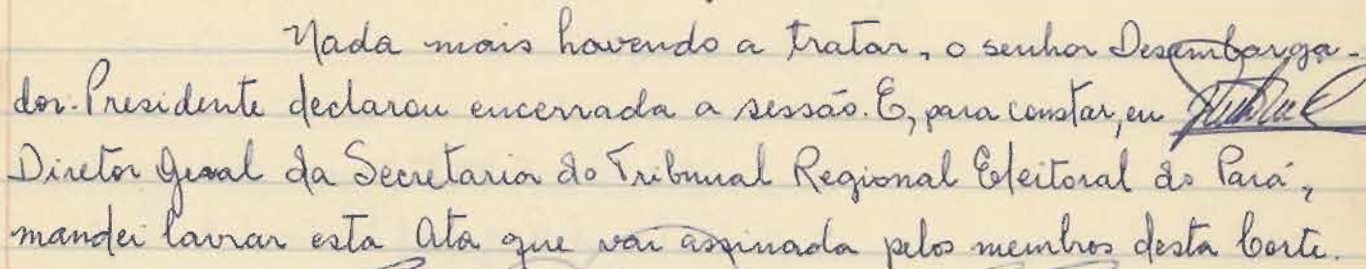 Nada mais havendo a tratar, o senhor Desembarga-
dor-Presidente declarou encerrada a sessão. E, para constar, eu
Diretor Geral da Secretaria do Tribunal Regional Eleitoral do Pará,
mandei lavrar esta Ata que vai assinada pelos membros desta Corte.